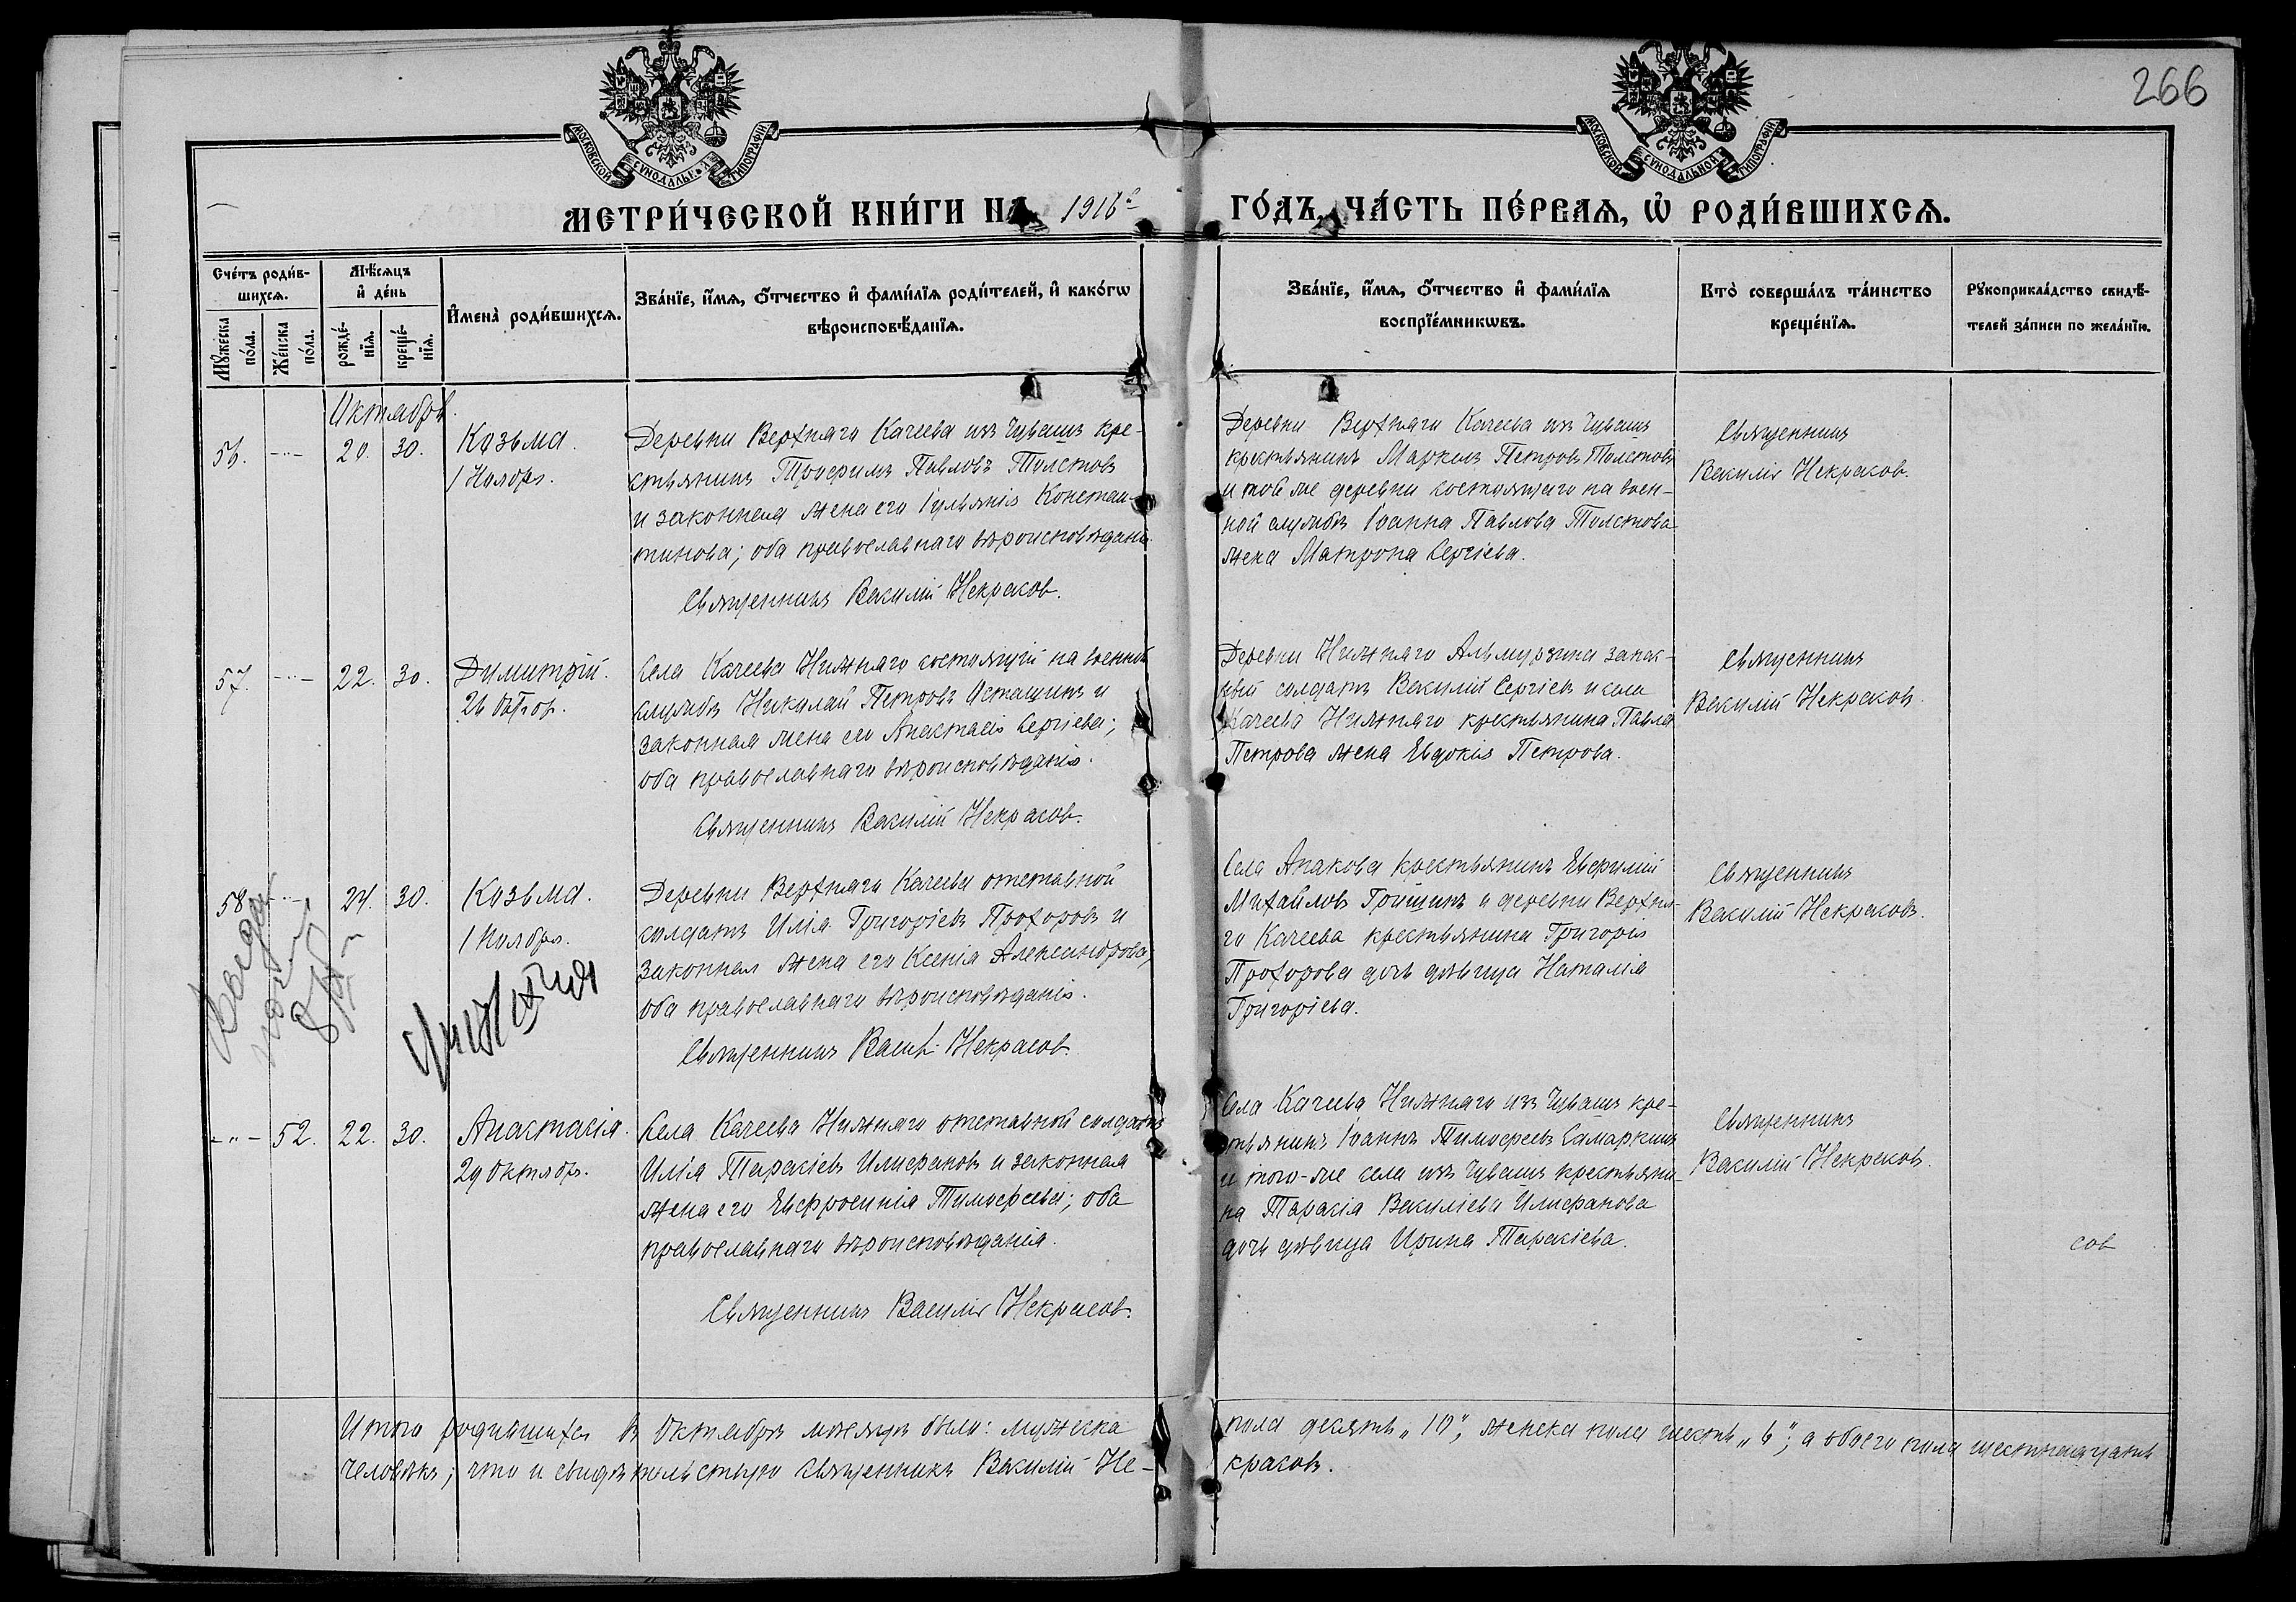 266
МОСКОВСКОЙ СУНОДАЛЬНОЙ ТИПОГРАФІИ
МОСКОВСКОЙ СУНОДАЛЬНОЙ ТИПОГРАФІИ
МЕТРИ́ЧЕСКОЙ КНИ́ГИ НА 1916й ГО́ДЪ, ЧА́СТЬ ПЕ́РВАѦ, Ѡ҆ РОДИ́ВШИХСѦ.
Сче́тъ роди́в-
шихсѧ.
Мꙋ́жеска
по́ла.
Же́нска
по́ла.
Мѣ́сѧцъ
и҆ де́нь
рожде́-
нїѧ.
креще́-
нїѧ.
И҆мена̀ роди́вшихсѧ.
Зва́нїе, и҆́мѧ, ѻ҆́тчество и҆ фами́лїѧ роди́телей, и҆ како́гѡ
вѣроисповѣ́данїѧ.
Зва́нїе, и҆́мѧ, ѻ҆́тчество и҆ фами́лїѧ
воспрїе́мникѡвъ.
Кто̀ соверша́лъ та́инство
креще́нїѧ.
Рꙋкоприкла́дство свидѣ́-
телей за́писи по жела́нїю.
Октябрь.
56. -"- 20. 30. Козьма.
1 Ноябр.
Деревни Верхняго Качеева изъ Чувашъ кре-
стьянинъ Трофимъ Павловъ Толстовъ
и законная жена его Іуліанія Констан-
тинова; оба православнаго вѣроисповѣданія.
Священникъ Василій Некрасов.
Деревни Верхняго Качеева изъ Чувашъ
крестьянинъ Маркелъ Петровъ Толстовъ
и той же деревни состоящаго на воен-
ной службѣ Іоанна Павлова Толстова
жена Матрона Сергіева.
Священникъ
Василій Некрасов.
57. -"- 22. 30. Димитрій.
26 Октяр.
Села Качеева Нижняго состоящій на военной
службѣ Николай Петровъ Осташинъ и
законная жена его Анастасія Сергіева;
оба православнаго вѣроисповѣданія.
Священникъ Василій Некрасов.
Деревни Нижняго Альмурзина запас-
ный солдатъ Василій Сергіевъ и села
Качеева Нижняго крестьянина Павла
Петрова жена Евдокія Петрова.
Священникъ
Василій Некрасовъ.
58 -"- 24. 30. Козьма.
1 Ноября.
Деревни Верхняго Качеева отставной
солдатъ Илія Григоріевъ Прохоровъ и
законная жена его Ксенія Александрова;
оба православнаго вѣроисповѣданія.
Священникъ Васил. Некрасов.
Села Апакова крестьянинъ Евфимій
Михайловъ Гришинъ и деревни Верхня-
го Качеева крестьянина Григорія
Прохорова дочь дѣвица Наталія
Григоріева.
Священникъ
Василій Некрасовъ.
-"- 52. 22. 30. Анастасія.
29 Октябр.
Села Качеева Нижняго отставной солдатъ
Илія Тарасіевъ Илифановъ и законная
жена его Евфросинія Тимоѳеева; оба
православнаго вѣроисповѣданія.
Священникъ Василій Некрасов.
Села Качеева Нижняго изъ Чувашъ кре-
стьянинъ Іоаннъ Тимоѳеевъ Самаркинъ
и того-же села изъ Чувашъ крестьяни-
на Тарасія Василіева Илифанова
дочь дѣвица Ирина Тарасіева.
Священникъ
Василій Некрасовъ.
сов
Итого родившихся въ Октябрѣ мѣсяцѣ было: мужеска пола десять „10", женска пола шесть „6"; а обоего пола шестнадцать
человѣкъ; что и свидѣтельствую священникъ Василій Не-
красовъ.